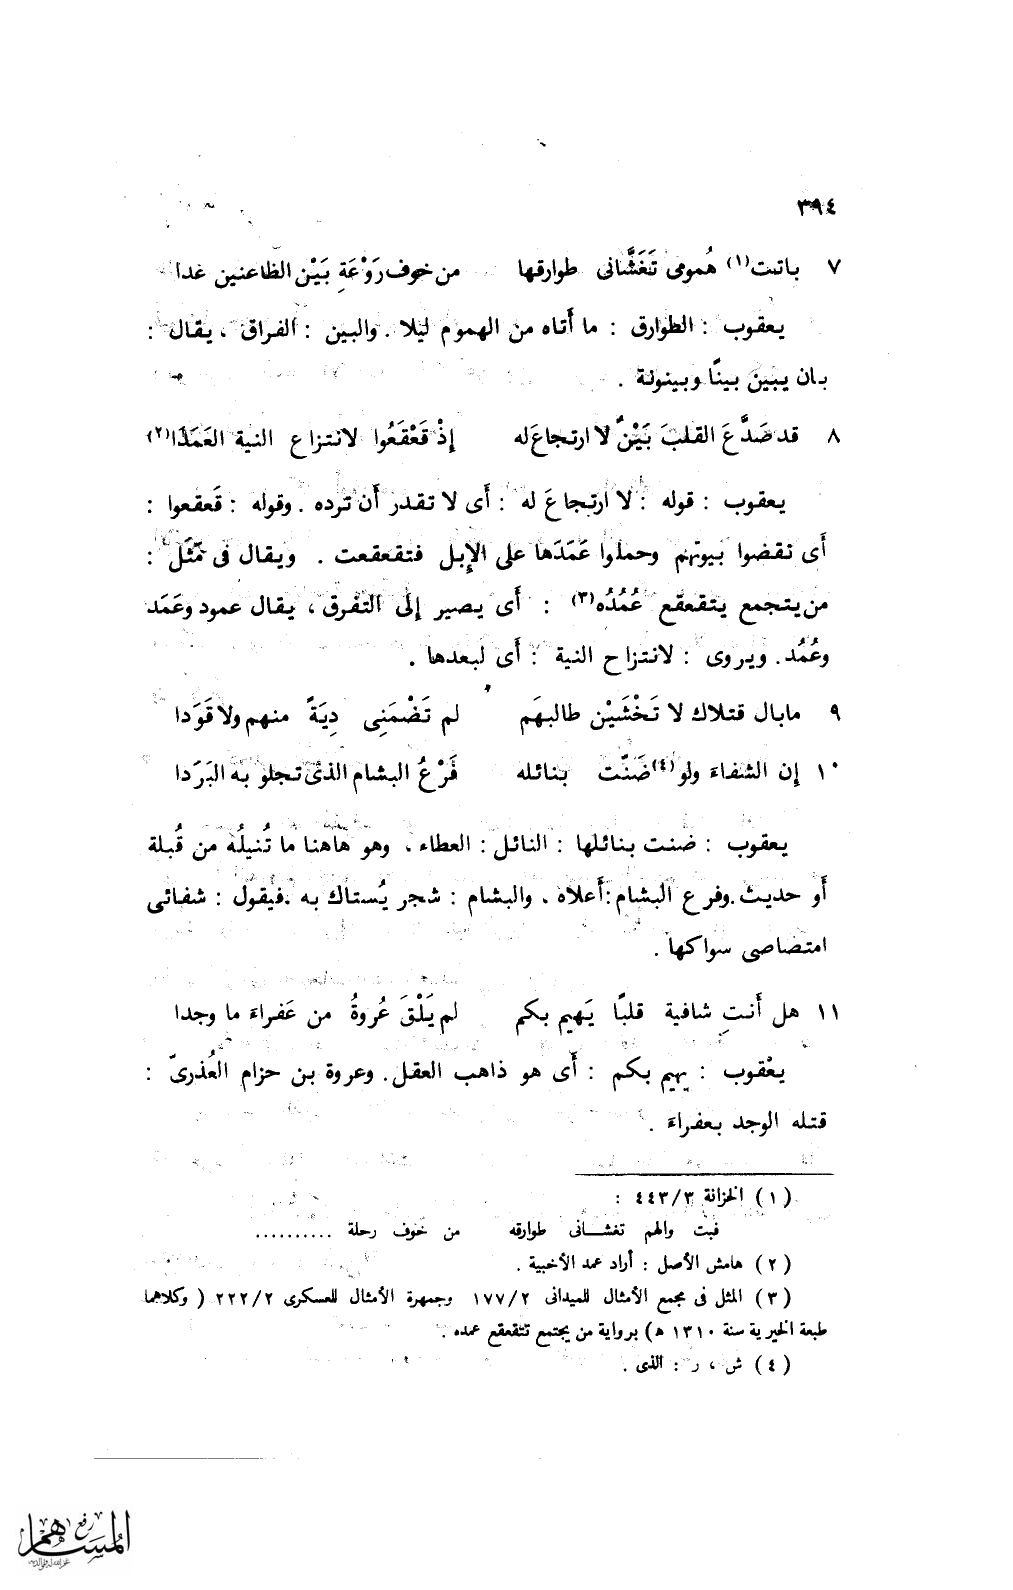 ٣٩٤
٧ باتت(١) هُمومى تَغَشَّانى طوارقها من خوف رَوْعَةِ بَيْن الظاعنين غدا
يعقوب : الطوارق : ما أَتاه من الهموم ليلا . والبين : الفراق ، يقال :
بان يبين بينًا وبينونة .
٨ قد صَدَّعَ القلبَ بَيْنٌ لا ارتجاعَ له إذْ قَعْقَعُوا لانتزاع النية العَمَدَا(٢)
يعقوب : قوله : لا ارتجاعَ له : أى لا تقدر أن ترده . وقوله : قَعقعوا :
أى نقضوا بيوتهم وحملوا عَمَدَها على الإبل فتقعقعت . ويقال فى مَثَل :
من يتجمع يتقعقع عُمُدُه(٣) : أَى يصير إلى التفرق ، يقال عمود وعَمَد
وعُمُد . ويروى : لانتزاح النية : أَى لبعدها .
٩ مابال قتلاك لا تَخْشَيْن طالبهَم لم تَضْمَنِى دِيَةً منهم ولا قَوَدا
١٠ إن الشفاءَ ولو(٤) ضَنّت بنائله فَرْعُ البشام الذى تجلو به البَرَدا
يعقوب : ضنت بنائلها : النائل : العطاء ، وهو هاهنا ما تُنيلُه من قُبلة
أَو حديث . وفرع البشام : أَعلاه ، والبشام : شجر يُستاك به . فيقول : شفائى
امتصاصى سواكها .
١١ هل أَنتِ شافية قلبًا يَهيم بكم لم يَلْقَ عُروةُ من عَفراءَ ما وجدا
يعْقوب : يهيم بكم : أَى هو ذاهب العقل . وعروة بن حزام العُذرىّ :
قتله الوجد بعفراءَ .
(١) الخزانة ٤٤٣/٣ :
فبت والهم تغشــانى طوارقه من خوف رحلة ..........
(٢) هامش الأصل : أراد عمد الأخبية .
(٣) المثل فى مجمع الأمثال للميدانى ١٧٧/٢ وجمهرة الأمثال للعسكرى ٢٢٢/٢ ( وكلاهما
طبعة الخيرية سنة ١٣١٠ ھ) برواية من يجتمع تتقعقع عمده .
(٤) ش ، ر : الذى .
رفع
المساهم